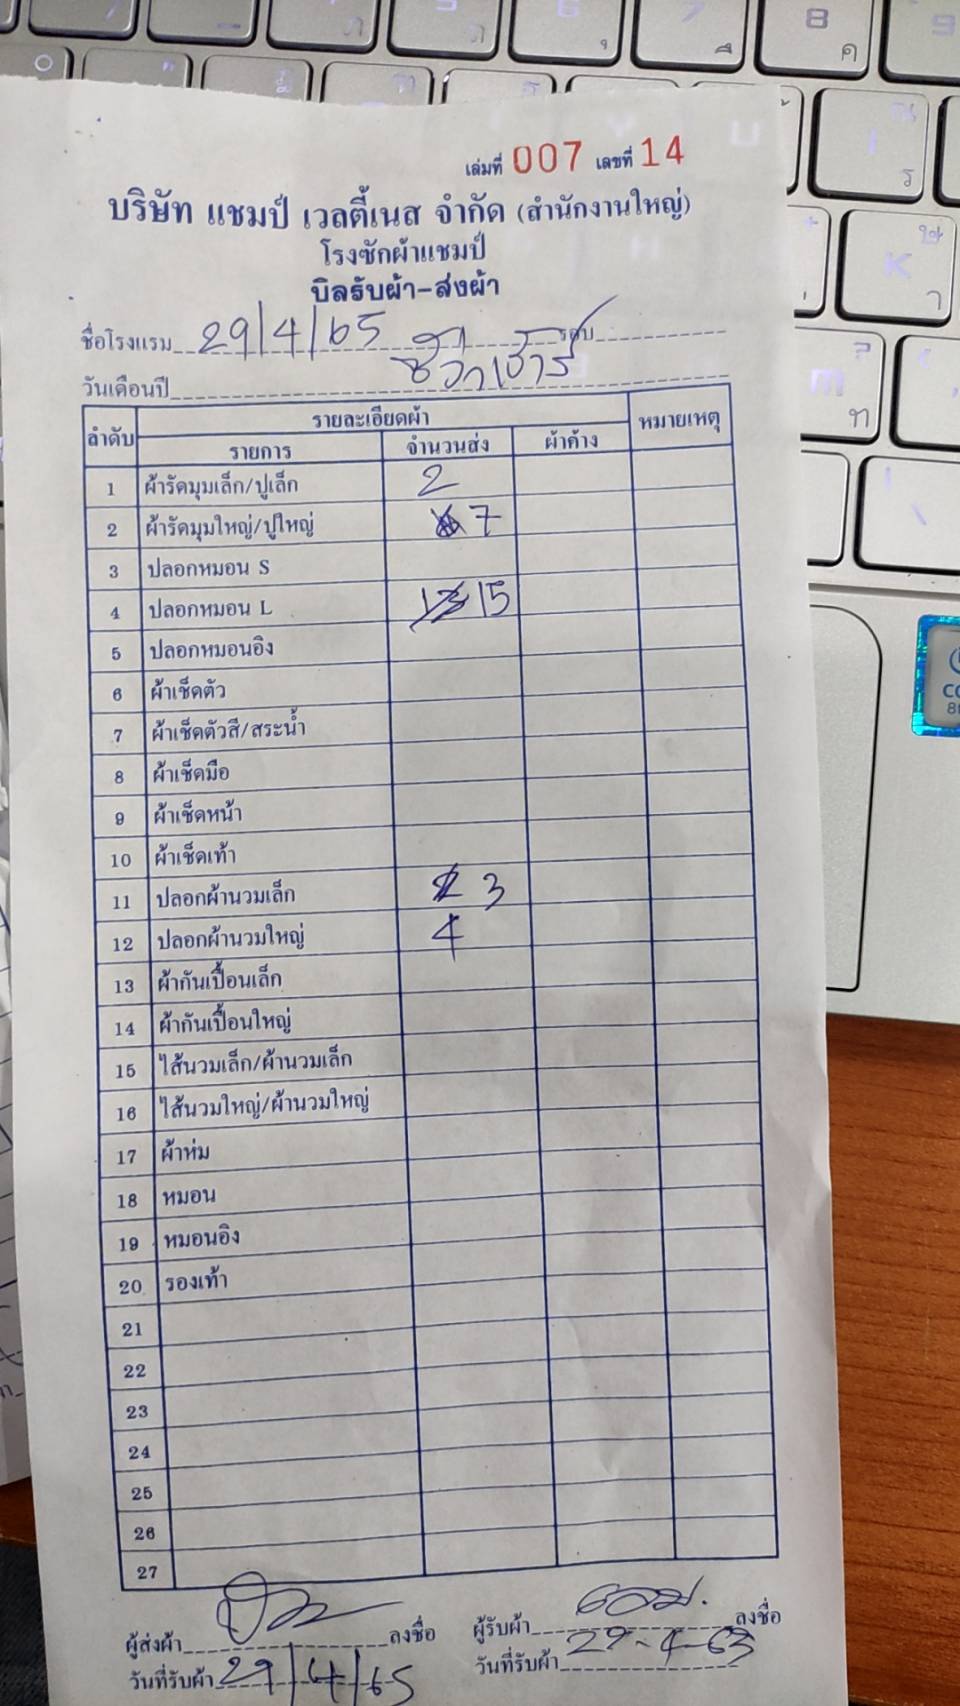 เล่มที่ 007 เลขที่ 14
บริษัท แชมป์ เวลตี้เนส จำกัด (สำนักงานใหญ่)
โรงซักผ้าแชมป์
บิลรับผ้า-ส่งผ้า
ชื่อโรงแรม 29/4/65 รอบ
วันเดือนปี
ลำดับ รายละเอียดผ้า หมายเหตุ
รายการ จำนวนส่ง ผ้าค้าง
1 ผ้ารัดมุมเล็ก/ปูเล็ก 2
2 ผ้ารัดมุมใหญ่/ปูใหญ่ 7
3 ปลอกหมอน S
4 ปลอกหมอน L 15
5 ปลอกหมอนอิง
6 ผ้าเช็ดตัว
7 ผ้าเช็ดตัวสี/สระน้ำ
8 ผ้าเช็ดมือ
9 ผ้าเช็ดหน้า
10 ผ้าเช็ดเท้า
11 ปลอกผ้านวมเล็ก 3
12 ปลอกผ้านวมใหญ่ 4
13 ผ้ากันเปื้อนเล็ก
14 ผ้ากันเปื้อนใหญ่
15 ไส้นวมเล็ก/ผ้านวมเล็ก
16 ไส้นวมใหญ่/ผ้านวมใหญ่
17 ผ้าห่ม
18 หมอน
19 หมอนอิง
20 รองเท้า
21
22
23
24
25
26
27
ผู้ส่งผ้า ลงชื่อ ผู้รับผ้า ลงชื่อ
วันที่รับผ้า 29/4/65 วันที่รับผ้า 29-4-63